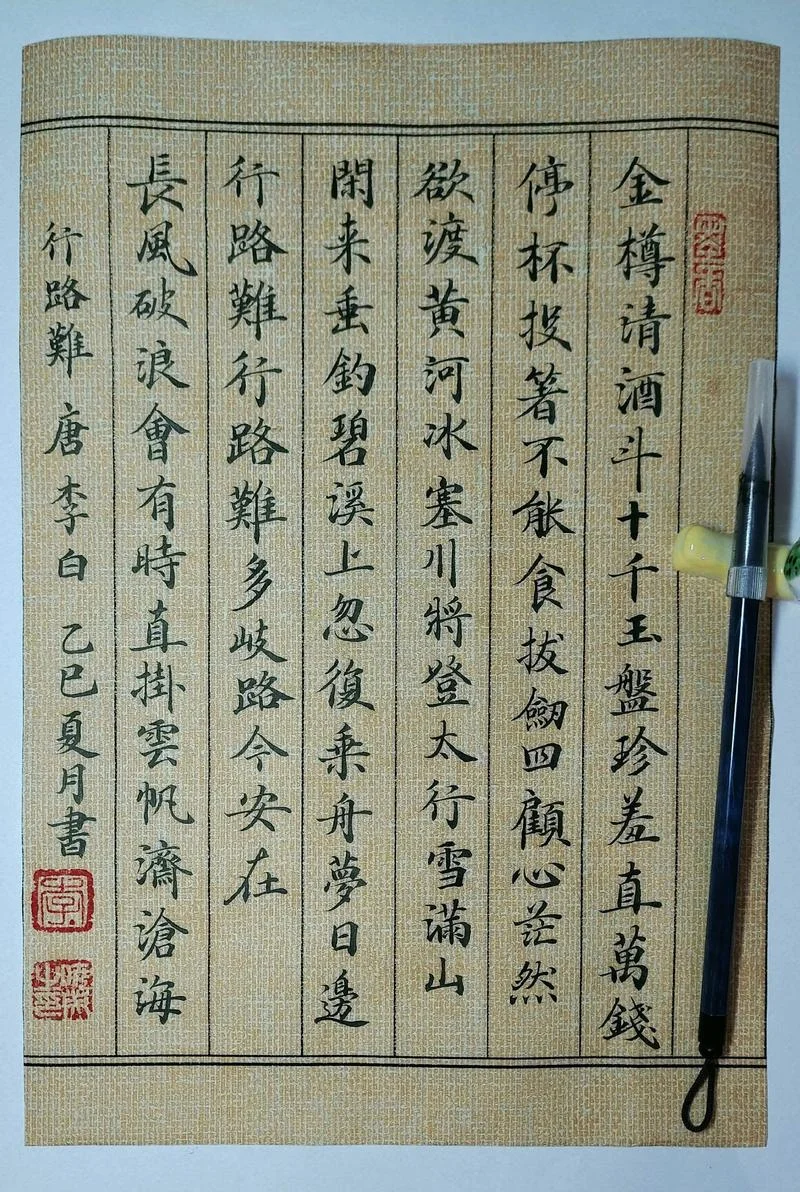 金樽清酒斗十千玉盤珍羞直萬錢
停杯投箸不能食拔劒四顧心茫然
欲渡黄河冰塞川將登太行雪滿山
閑来垂釣碧溪上忽復乗舟夢日邊
行路難行路難多岐路今安在
長風破浪會有時直掛雲帆濟滄海
行路難 唐 李白 乙巳夏月書